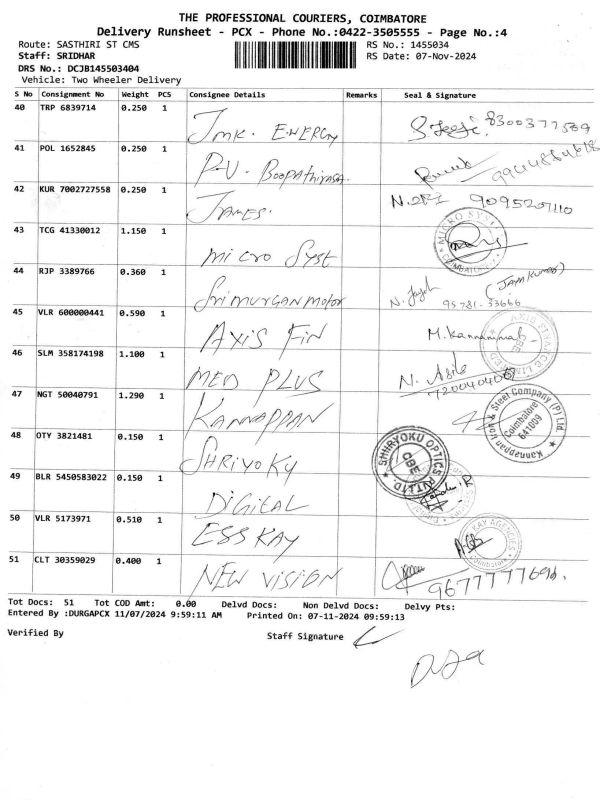 THE PROFESSIONAL COURIERS, COIMBATORE
Delivery Runsheet - PCX - Phone No.:0422-3505555 - Page No.:4
Route: SASTHIRI ST CMS RS No.: 1455034
Staff: SRIDHAR RS Date: 07-Nov-2024
DRS No.: DCJB145503404
Vehicle: Two Wheeler Delivery
S No Consignment No Weight PCS Consignee Details Remarks Seal & Signature
40 TRP 6839714 0.250 1 JMK. ENERGY 8300377589
41 POL 1652845 0.250 1 P.V. Boopathiyasa.
42 KUR 7002727558 0.250 1 JAMES. 9095207110
43 TCG 41330012 1.150 1 Micro Syst MICRO SYS COIMBATORE
44 RJP 3389766 0.360 1 Srimurgan motor (JAYAKUMAR) 95781-33666
45 VLR 600000441 0.590 1 AXIS FIN M. Kannammal
46 SLM 358174198 1.100 1 MED PLUS 7200404067
47 NGT 50040791 1.290 1 KANNAPPAN Kannappan Iron & Steel Company (P) Ltd. Coimbatore 641009
48 OTY 3821481 0.150 1 SHRIYOKY SHIRYOKU OPTICS PVT.LTD. CBE
49 BLR 5450583022 0.150 1 DiGiTAL
50 VLR 5173971 0.510 1 ESS KAY KAY AGENCIES
51 CLT 30359029 0.400 1 NEW VISION 9677777696.
Tot Docs: 51 Tot COD Amt: 0.00 Delvd Docs: Non Delvd Docs: Delvy Pts:
Entered By :DURGAPCX 11/07/2024 9:59:11 AM Printed On: 07-11-2024 09:59:13
Verified By Staff Signature